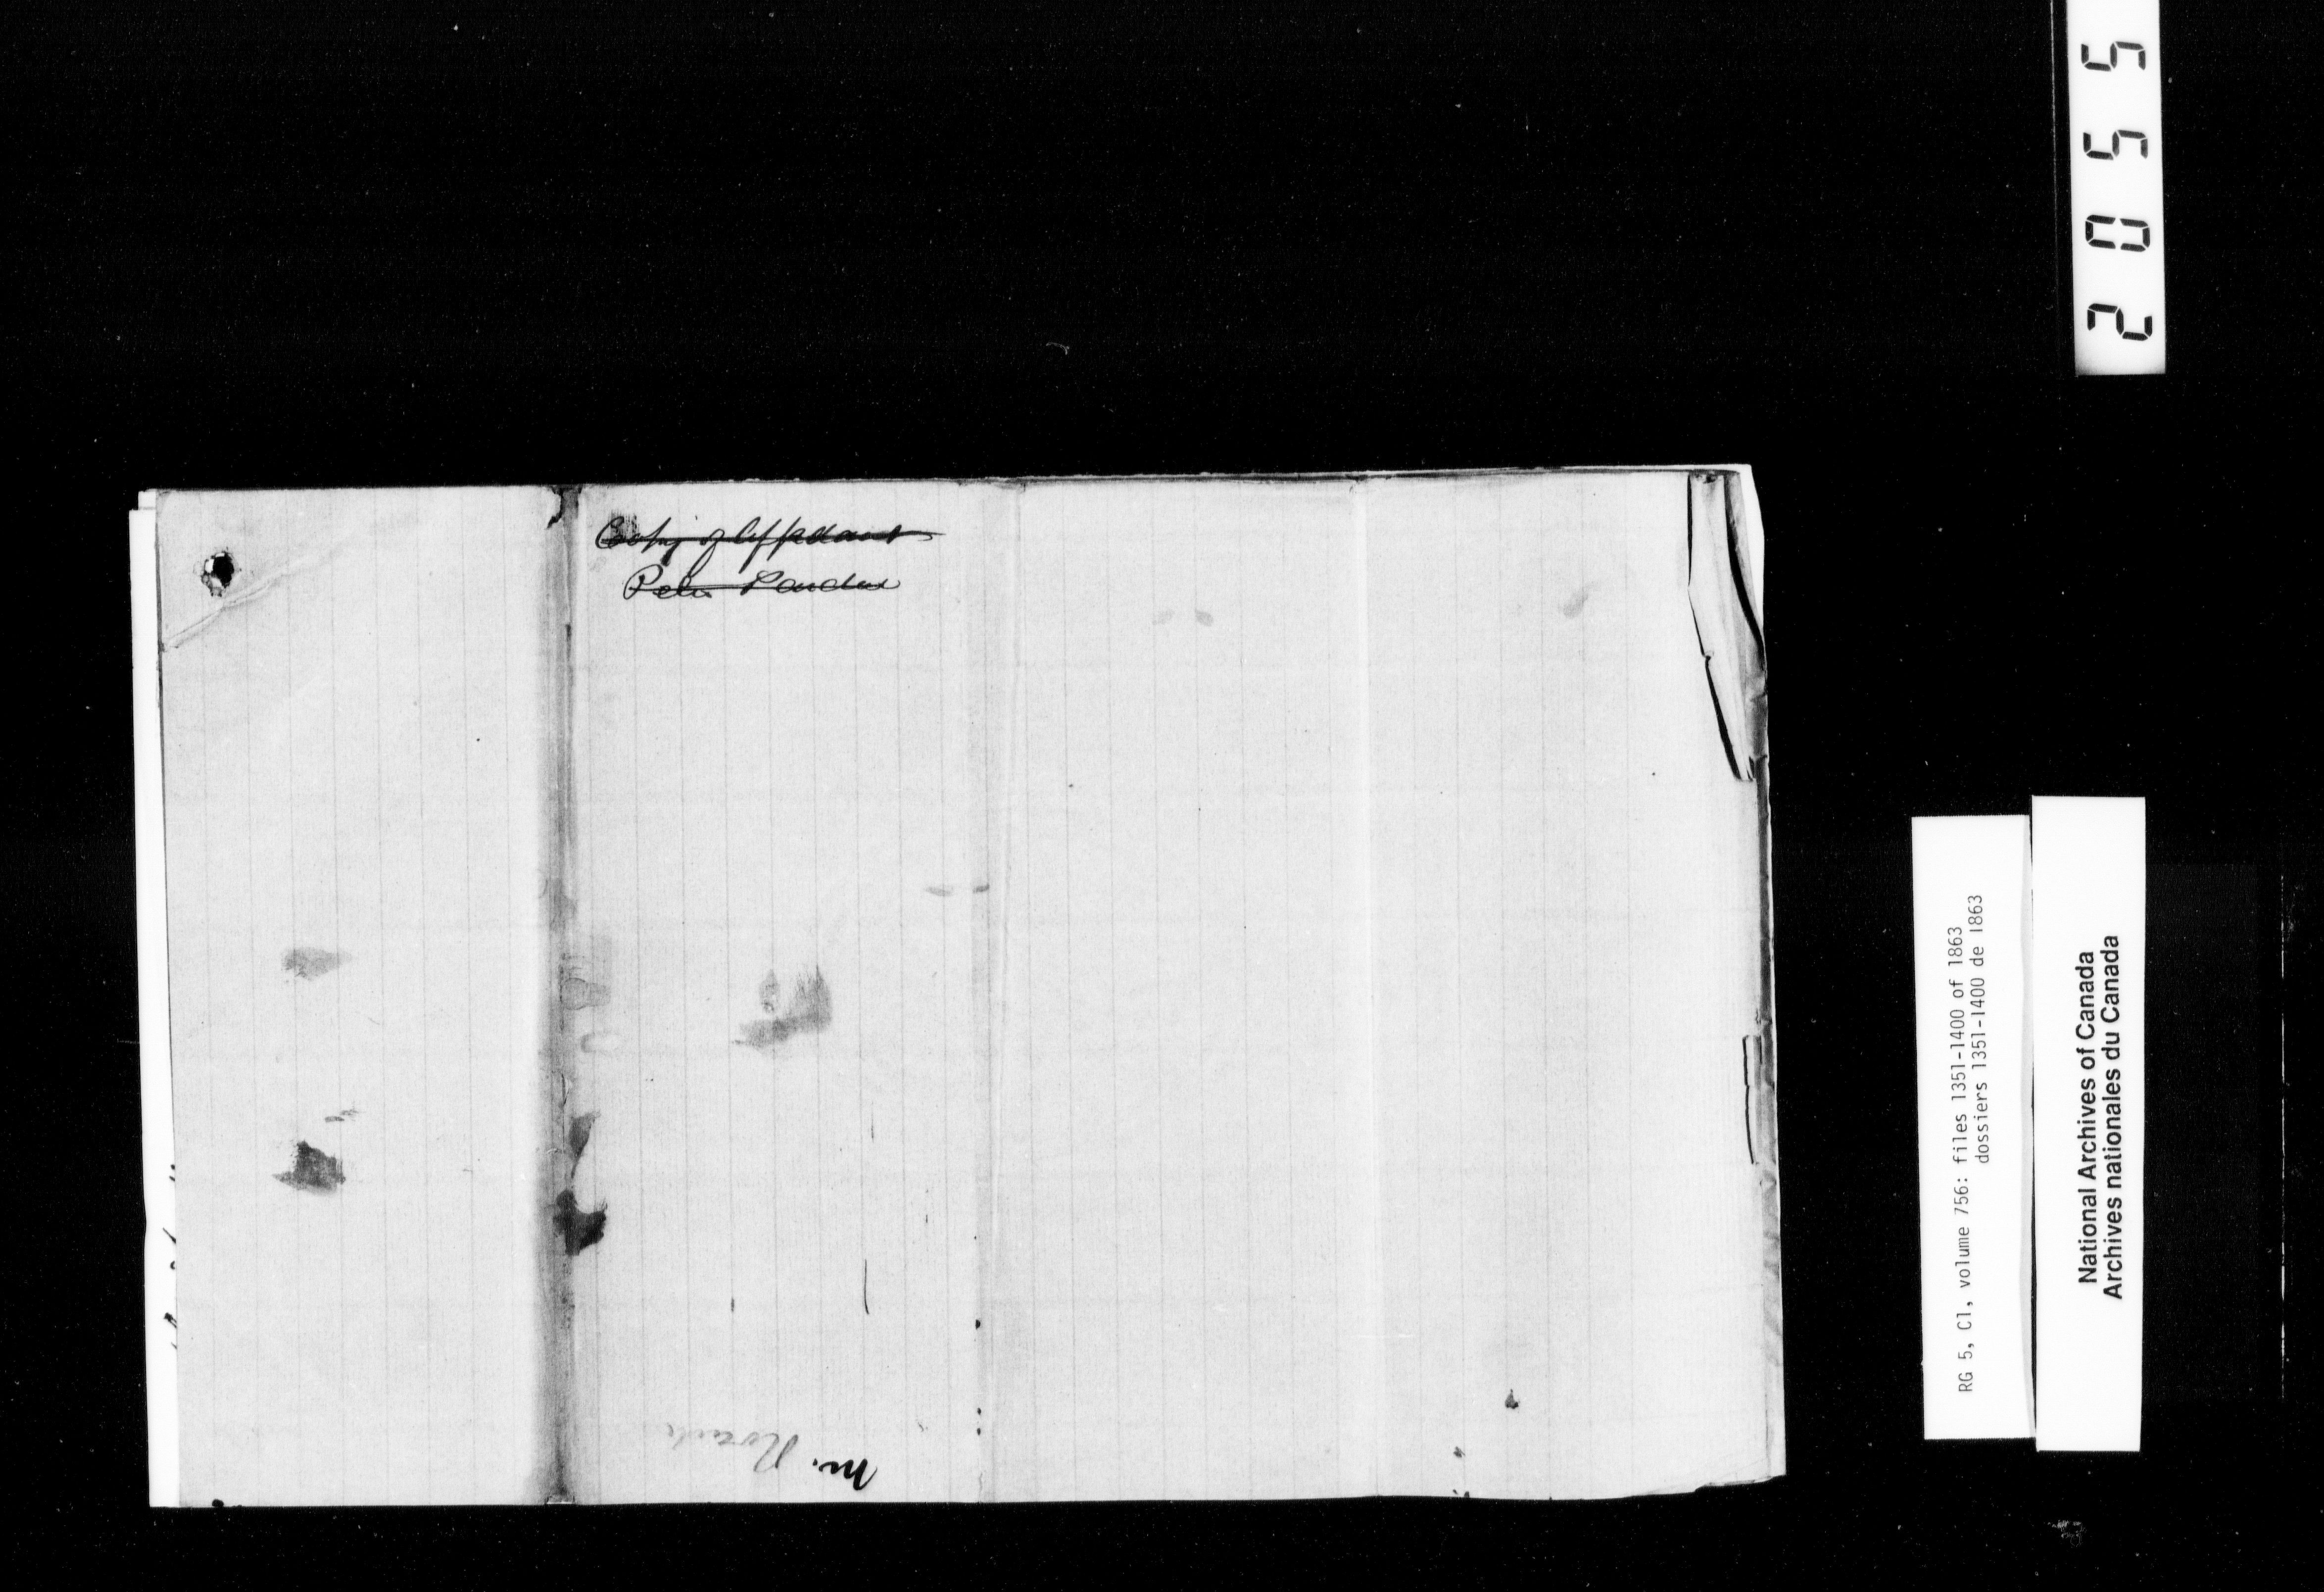 Copy of Affidavit
Peter
Mr.
2055
RG 5, C1, volume 756: files 1351-1400 of 1863
dossiers 1351-1400 de 1863
National Archives of Canada
Archives nationales du Canada